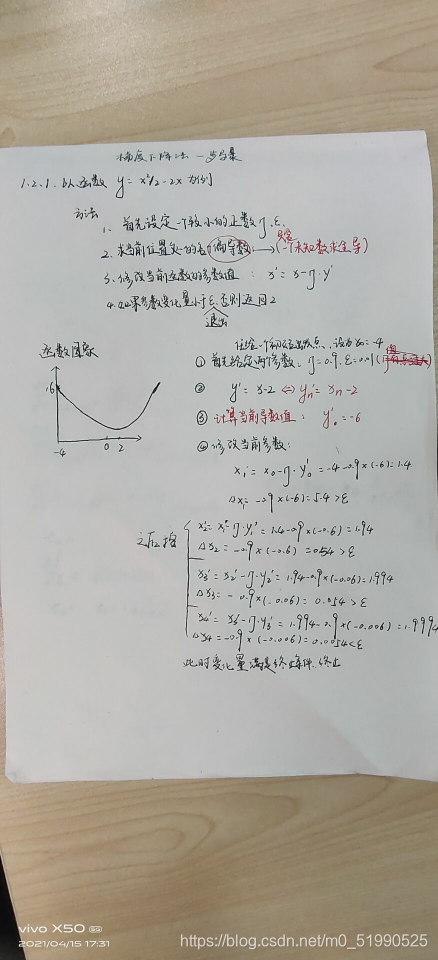 梯度下降法 一步步录
1.2.1.以函数 y = x²/2-2x 为例
方法
1. 首先设定一个较小的正数 η, ε.
2. 求当前位置处的各个偏导数 → (一个未知数求全导)
3. 修改当前函数的参数值: x' = x-η·y'
4. 如果参数变化量小于ε, 否则返回2
退出
函数图象
16
-4 0 2
任给一个初始出发点, 设为x₀=-4
① 首先给定两个参数, η=0.9, ε=0.01
② y' = x-2 ⇔ yn' = xn-2
③ 计算当前导数值: y'₀ = -6
④ 修改当前参数:
x₁' = x₀-η·y'₀ = -4-0.9×(-6)=1.4
Δx₁ = -0.9×(-6)=5.4>ε
之后按
x₂' = x₁'-η·y₁' = 1.4-0.9×(-0.6)=1.94
Δx₂ = -0.9×(-0.6)=0.54>ε
x₃' = x₂'-η·y₂' = 1.94-0.9×(-0.06)=1.994
Δx₃ = -0.9×(-0.06)=0.054>ε
x₄' = x₃'-η·y₃' = 1.994-0.9×(-0.006)=1.9994
Δx₄ = -0.9×(-0.006)=0.0054<ε
此时变化量满足终止条件, 终止
vivo X50 5G
2021/04/15 17:31
https://blog.csdn.net/m0_51990525